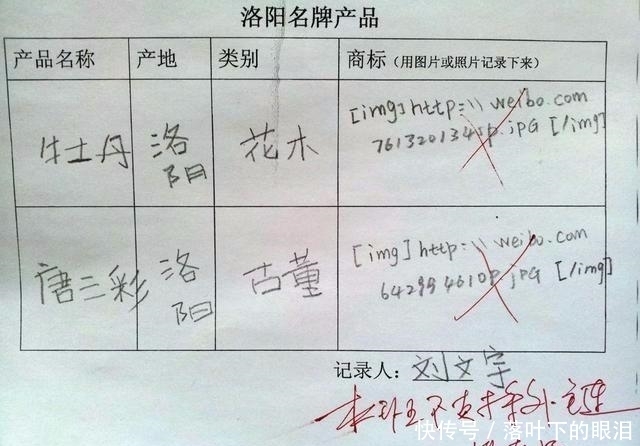 洛阳名牌产品
产品名称 产地 类别 商标（用图片或照片记录下来）
牡丹 洛阳 花木 [img]http:\\weibo.com
761320134jp.jpG [/img]
唐三彩 洛阳 古董 [img]http:\\weibo.com
642994610p.jpG [/img]
记录人：刘文宇
本班主不支持外链
快传号／落叶下的眼泪